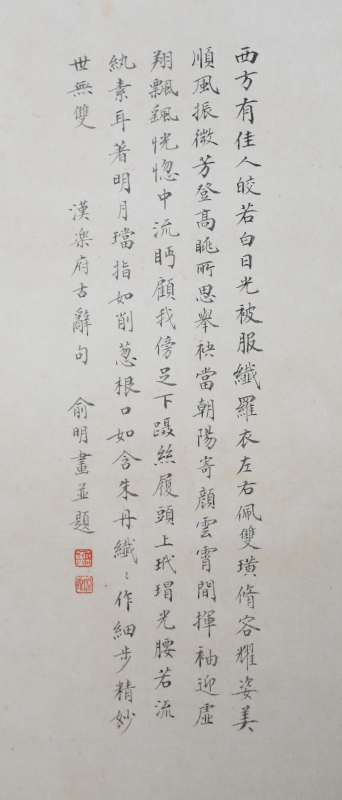 西方有佳人皎若白日光被服纖羅衣左右佩雙璜脩容耀姿美
順風振微芳登高眺所思舉袂當朝陽寄顏雲霄間揮袖迎虛
翔飄飖恍惚中流眄顧我傍足下躡絲履頭上玳瑁光腰若流
紈素耳著明月璫指如削葱根口如含朱丹纖〻作細步精妙
世無雙
漢樂府古辭句 俞明畫並題